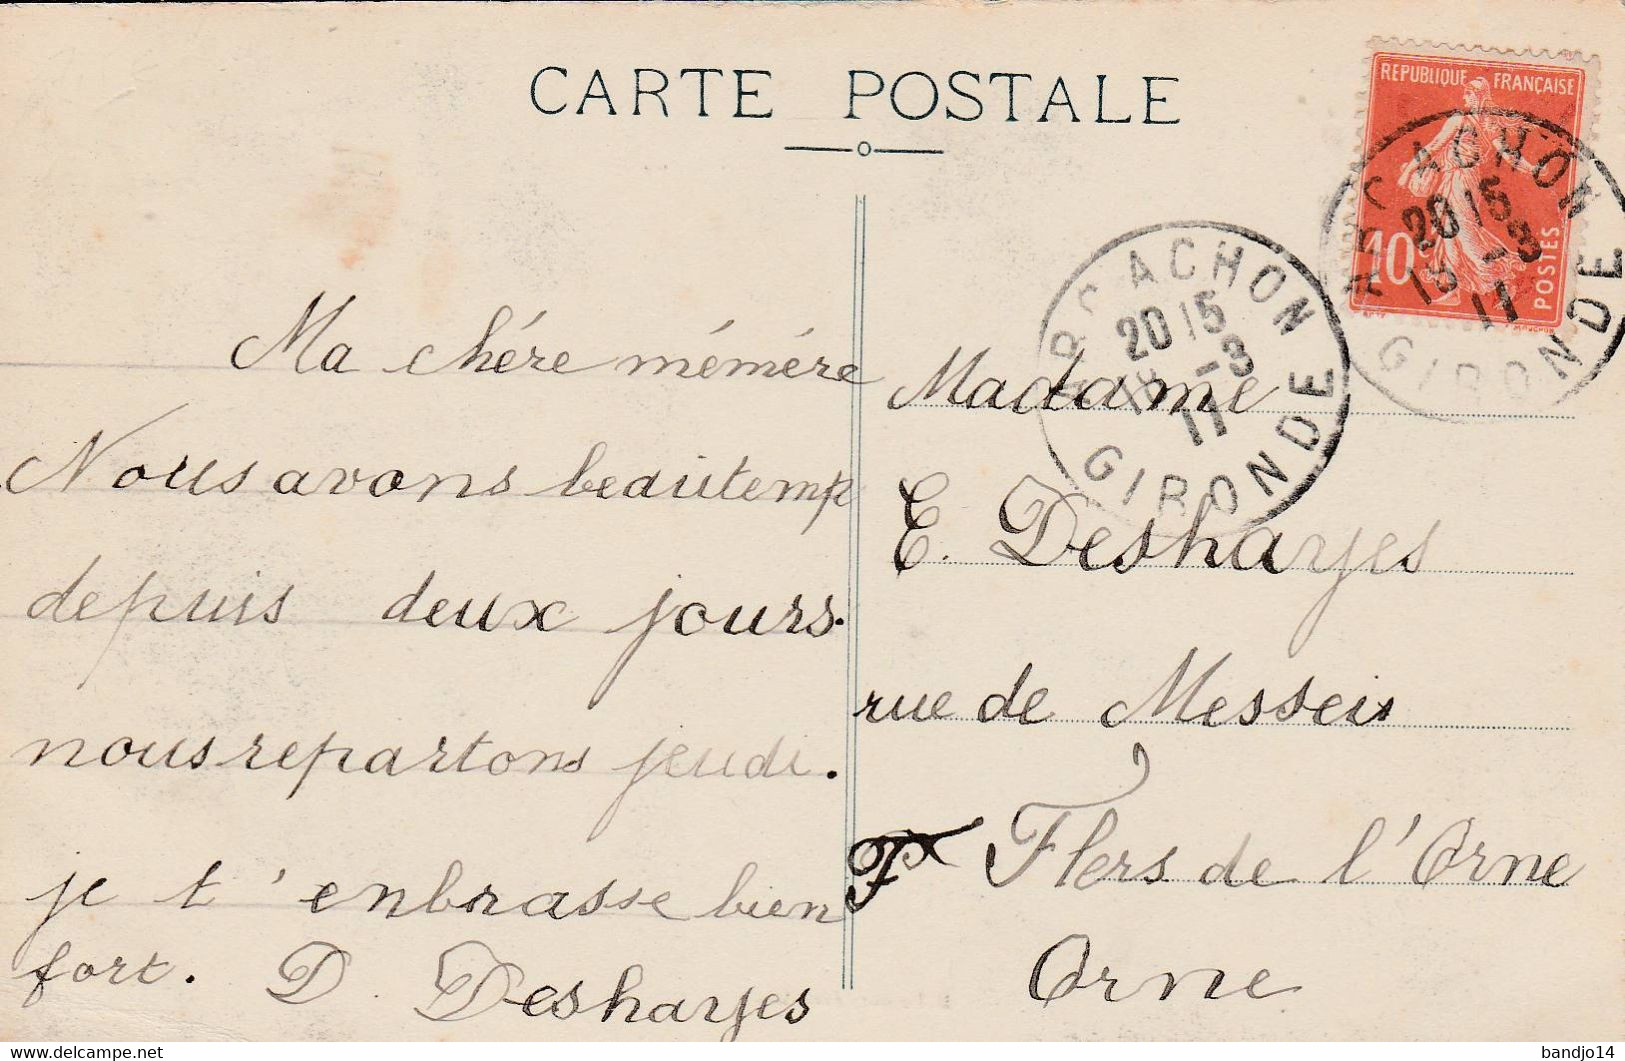 CARTE POSTALE
REPUBLIQUE FRANÇAISE
10
POSTES
ARCACHON
20 15
13 -3
11
GIRONDE
ARCACHON
20 15
13 -3
11
GIRONDE
Ma chére mémére
Nous avons beautemp
depuis deux jours.
nous repartons jeudi.
je t'enbrasse bien
fort. D. Deshayes
Madame
E. Deshayes
rue de Messeis
F Flers de l'Orne
Orne
https://www.delcampe.net
bandjo14